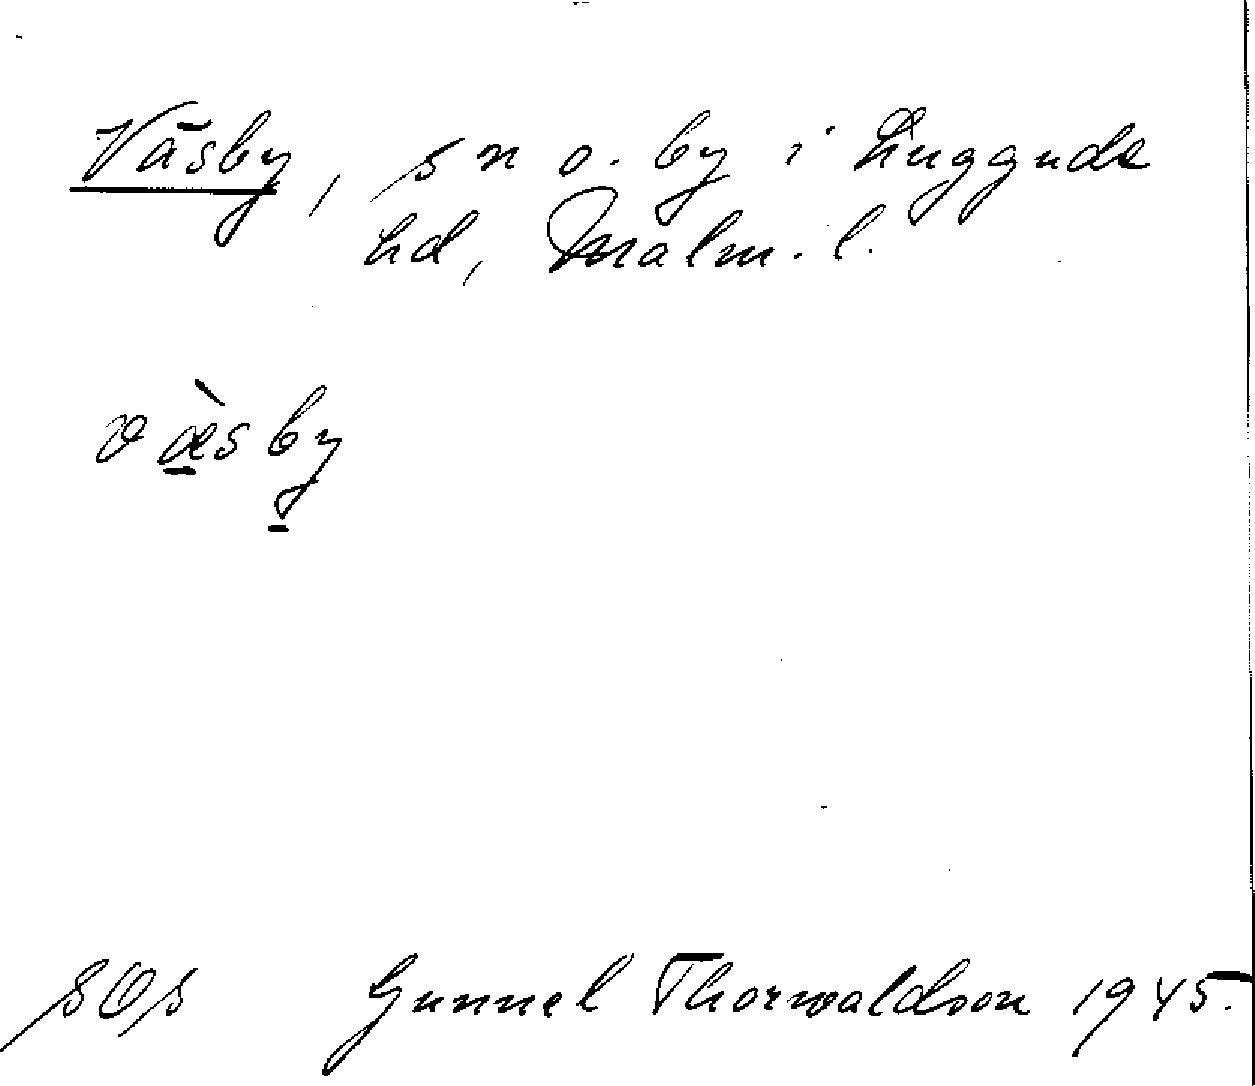 Väsby, sn o. by i Luggude
hd, Malm. l.
væ̀sby
SOS Gunnel Thorwaldson 1945.